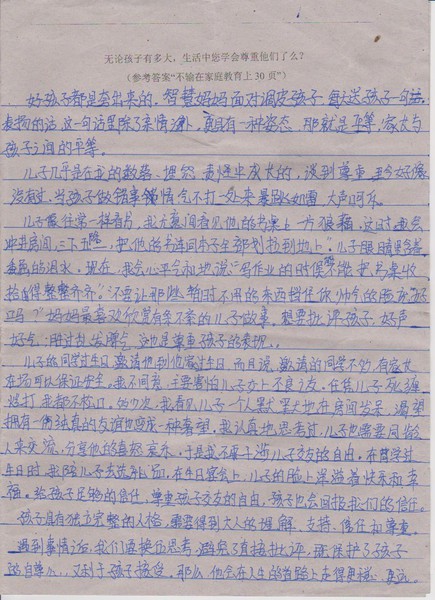 无论孩子有多大，生活中您学会尊重他们了么？
（参考答案“不输在家庭教育上30页”）
好孩子都是夸出来的，智慧妈妈面对调皮孩子，每天送孩子一句
表扬的话，这一句话里除了亲情之外，真具有一种姿态，那就是平等，家长与
孩子之间的平等。
儿子几乎是在我的数落、埋怨、中成长的，谈到尊重，至今好像
没有过，当孩子做错事情气不打一处来暴跳如雷，大声呵斥。
儿子像往常一样看书，我无意间看见他的书桌上一片狼藉，这时我会
冲进房间，三下五除，把他的书连同本子全部划拉到地上”，儿子眼睛里含着
委屈的泪水，现在，我会心平气和地说：“写作业的时候能不能把书桌收
拾得整整齐齐。”“不要让那些暂时不用的东西挡住你帅气的脸庞”好
吗？”妈妈最喜欢欣赏有条不紊的儿子做事，想要批评孩子，好声
好气，用讨论发脾气，这也是尊重孩子的表现。
儿子的同学过生日，邀请他到他家过生日，而且说，邀请的同学不少，有家长
在场可以保证安全。我不同意，主要害怕儿子交上不良少友，任凭儿子死缠
烂打，我都不松口。的少次，我看见儿子一个人默默地在房间发呆，渴望
拥有一份纯真的友谊也变成一种奢望，我认真地思考过，儿子也需要同龄
人来交流，分享他的喜怒哀乐，于是我不再干涉儿子交友的自由，在同学过
生日时，我陪儿子去选礼品，在生日宴会上，儿子的脸上洋溢着快乐和幸
福。给孩子足够的信任，尊重孩子交友的自由，孩子也会回报我们的信任。
孩子具有独立完整的人格，需要得到大人的理解、支持、信任和尊重。
遇到事情后，我们要换位思考，避免了直接批评，既保护了孩子
的自尊心，又利于孩子接受。那么，他会在人生的道路上走得更稳、更远。